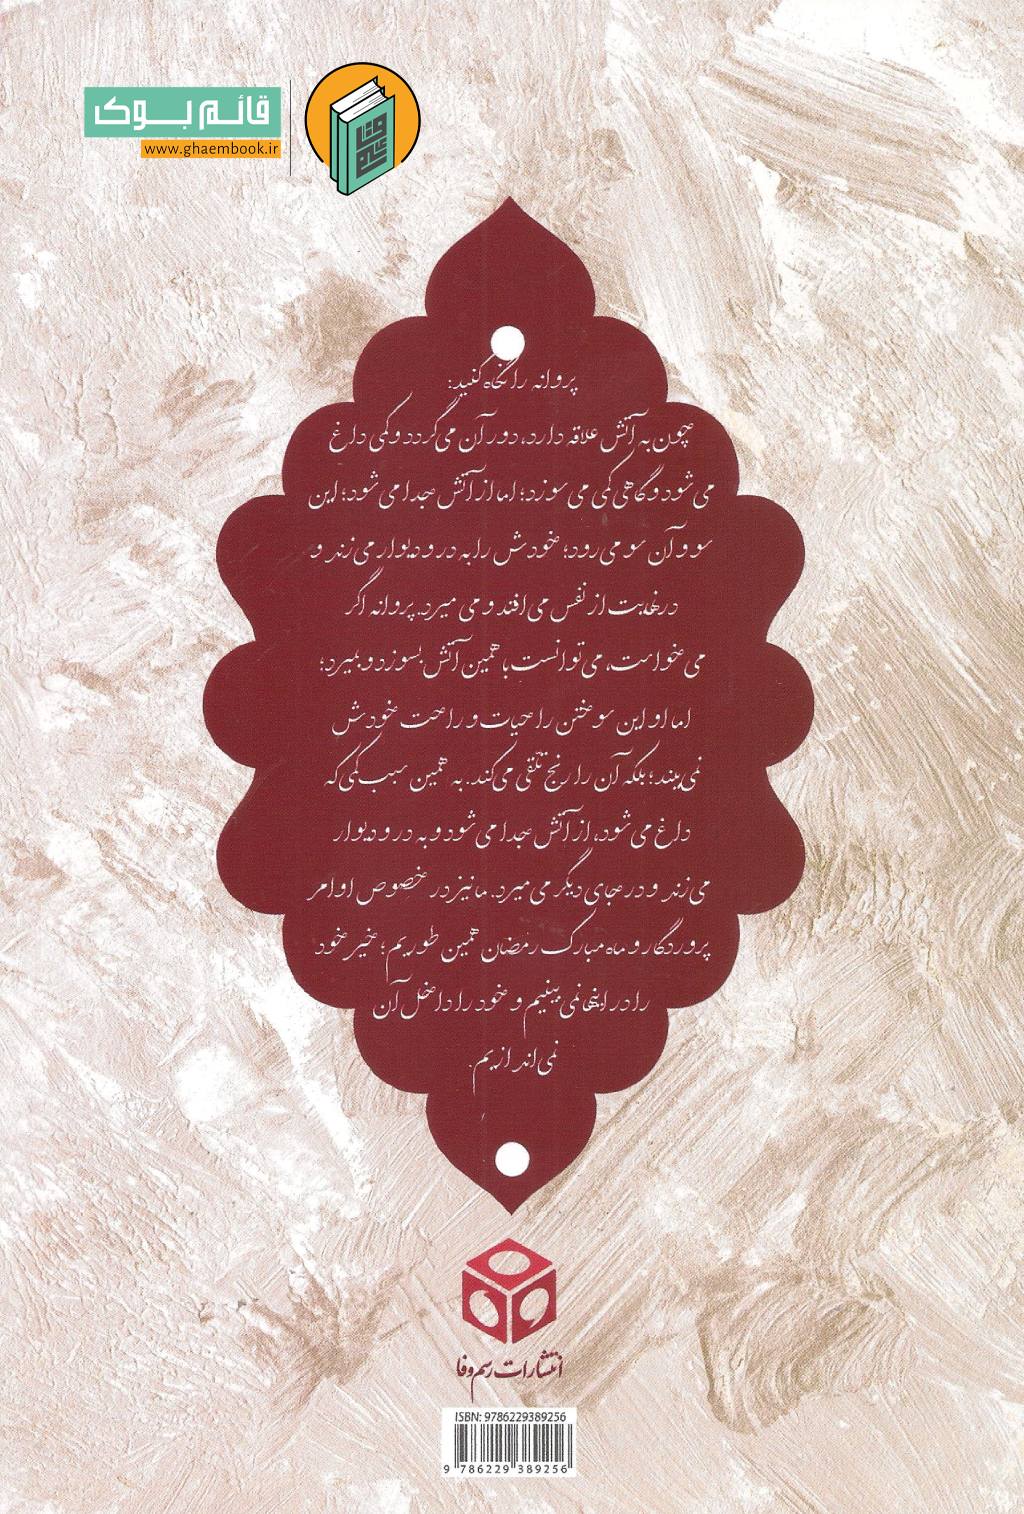 قائم بوک
www.ghaembook.ir
پروانه را نگاه کنید:
چون به آتش علاقه دارد، دور آن می‌گردد و کمی داغ
می‌شود و گاهی کمی می‌سوزد؛ اما از آتش جدا می‌شود؛ این
سو و آن سو می‌رود؛ خودش را به در و دیوار می‌زند و
در نهایت از نفس می‌افتد و می‌میرد. پروانه اگر
می‌خواست، می‌توانست با همین آتش بسوزد و بمیرد؛
اما او این سوختن را حیات و راحت خودش
نمی‌بیند؛ بلکه آن را رنج تلقی می‌کند. به همین سبب کمی که
داغ می‌شود، از آتش جدا می‌شود و به در و دیوار
می‌زند و در جای دیگر می‌میرد. ما نیز در خصوص اوامر
پروردگار و ماه مبارک رمضان همین طوریم؛ خیر خود
را در اینها نمی‌بینیم و خود را داخل آن
نمی‌اندازیم.
انتشارات رسم وفا
ISBN: 9786229389256
9 786229 389256